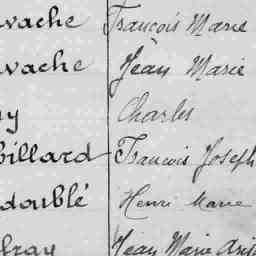 vache François Marie
vache Jean Marie
y Charles
Billard François Joseph
doublé Henri Marie
fray Jean Marie